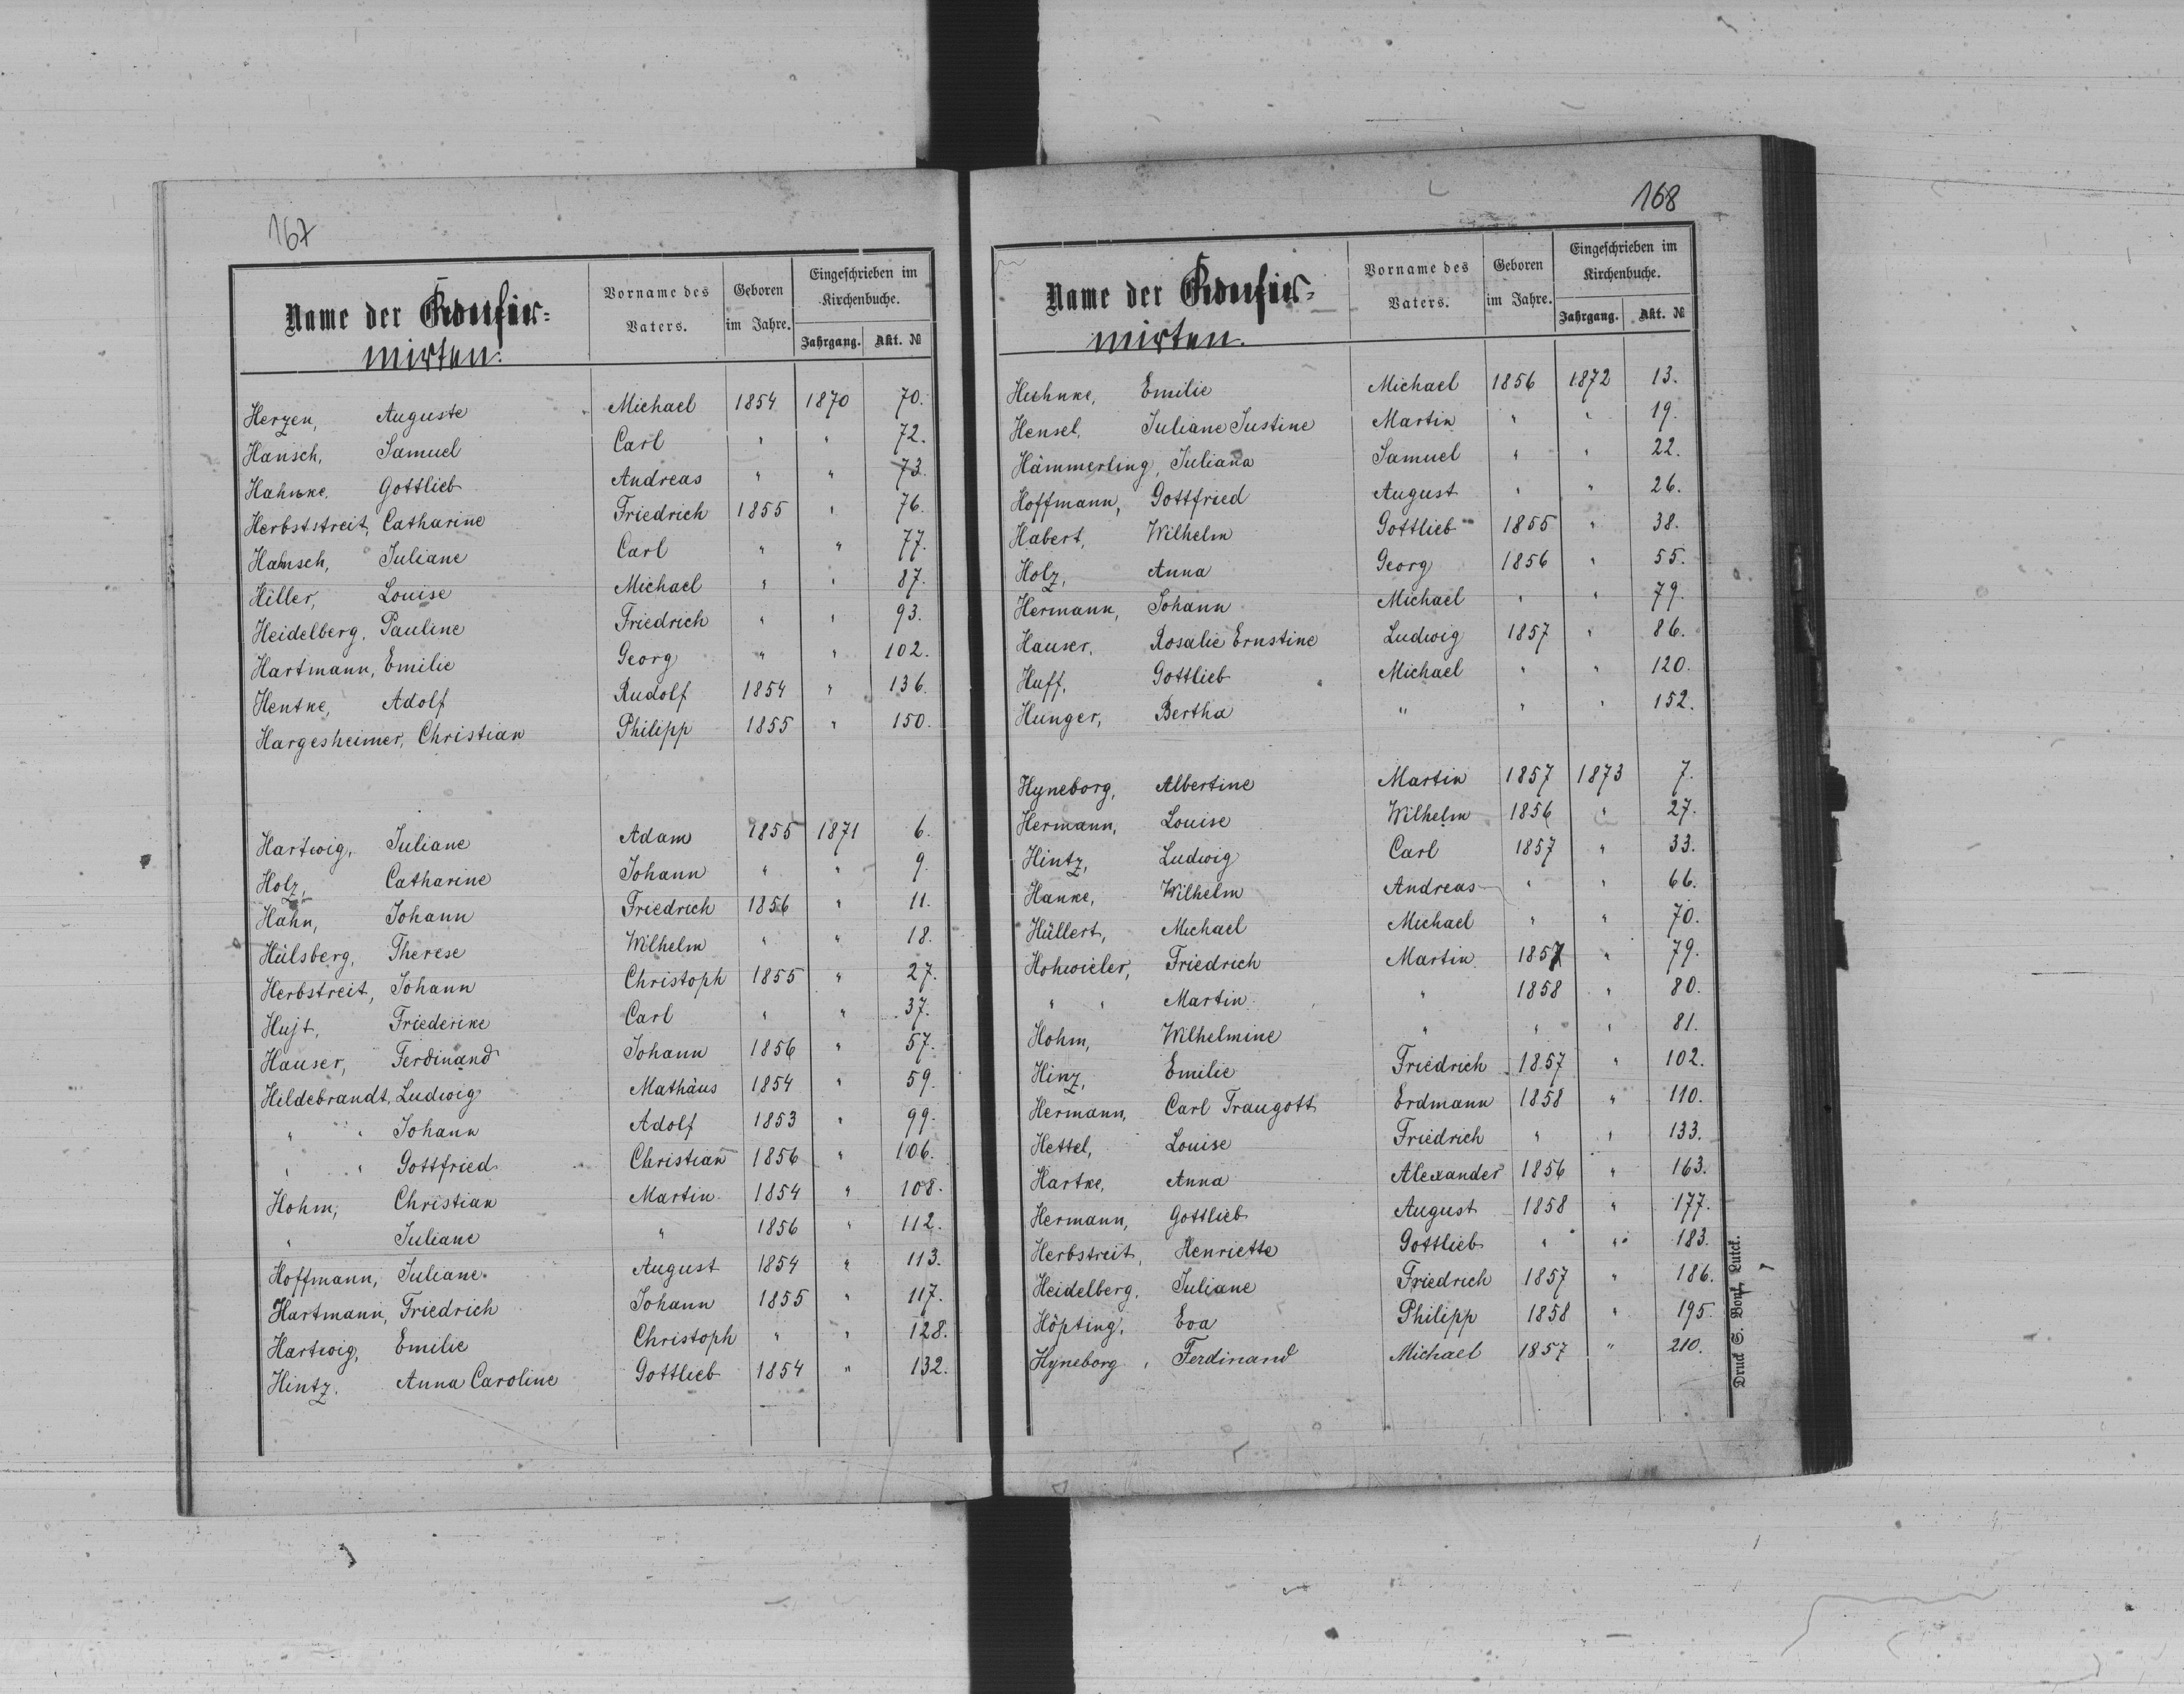 167
Name der Confir=
mirten.
Vorname des Vaters.
Geboren im Jahre.
Eingeschrieben im Kirchenbuche.
Jahrgang. Akt. №
Herzen, Auguste Michael 1854 1870 70.
Hansch, Samuel Carl " " 72.
Hahnke, Gottlieb Andreas " " 73.
Herbststreit, Catharine Friedrich 1855 " 76.
Hansch, Juliane Carl " " 77.
Hiller, Louise Michael " " 87.
Heidelberg, Pauline Friedrich " " 93.
Hartmann, Emilie Georg " " 102.
Hentke, Adolf Rudolf 1854 " 136.
Hargesheimer, Christian Philipp 1855 " 150.
Hartwig, Juliane Adam 1855 1871 6.
Holz, Catharine Johann " " 9.
Hahn, Johann Friedrich 1856 " 11.
Hülsberg, Therese Wilhelm " " 18.
Herbstreit, Johann Christoph 1855 " 27.
Hujt, Friederike Carl " " 37.
Hauser, Ferdinand Johann 1856 " 57.
Hildebrandt, Ludwig Mathäus 1854 " 59.
" " Johann Adolf 1853 " 99.
" " Gottfried Christian 1856 " 106.
Hohm, Christian Martin 1854 " 108.
" Juliane " 1856 " 112.
Hoffmann, Juliane August 1854 " 113.
Hartmann, Friedrich Johann 1855 " 117.
Hartwig, Emilie Christoph " " 128.
Hintz, Anna Caroline Gottlieb 1854 " 132.
168
Name der Confir=
mirten.
Vorname des Vaters.
Geboren im Jahre.
Eingeschrieben im Kirchenbuche.
Jahrgang. Akt. №
Emilie Michael 1856 1872 13.
Hensel, Juliane Justine Martin " " 19.
Hämmerling, Juliana Samuel " " 22.
Hoffmann, Gottfried August " " 26.
Habert, Wilhelm Gottlieb 1855 " 38.
Holz, Anna Georg 1856 " 55.
Hermann, Johann Michael " " 79.
Hauser, Rosalie Ernstine Ludwig 1857 " 86.
Huff, Gottlieb Michael " " 120.
Hunger, Bertha " " " 152.
Hyneborg, Albertine Martin 1857 1873 7.
Hermann, Louise Wilhelm 1856 " 27.
Hintz, Ludwig Carl 1857 " 33.
Hanke, Wilhelm Andreas " " 66.
Hüllert, Michael Michael " " 70.
Hohwieler, Friedrich Martin 1857 " 79.
" " Martin " 1858 " 80.
Hohm, Wilhelmine " " " 81.
Hinz, Emilie Friedrich 1857 " 102.
Hermann, Carl Traugott Erdmann 1858 " 110.
Hettel, Louise Friedrich " " 133.
Hartke, Anna Alexander 1856 " 163.
Hermann, Gottlieb August 1858 " 177.
Herbstreit, Henriette Gottlieb " " 183.
Heidelberg, Juliane Friedrich 1857 " 186.
Höpting, Eva Philipp 1858 " 195.
Hyneborg, Ferdinand Michael 1857 " 210.